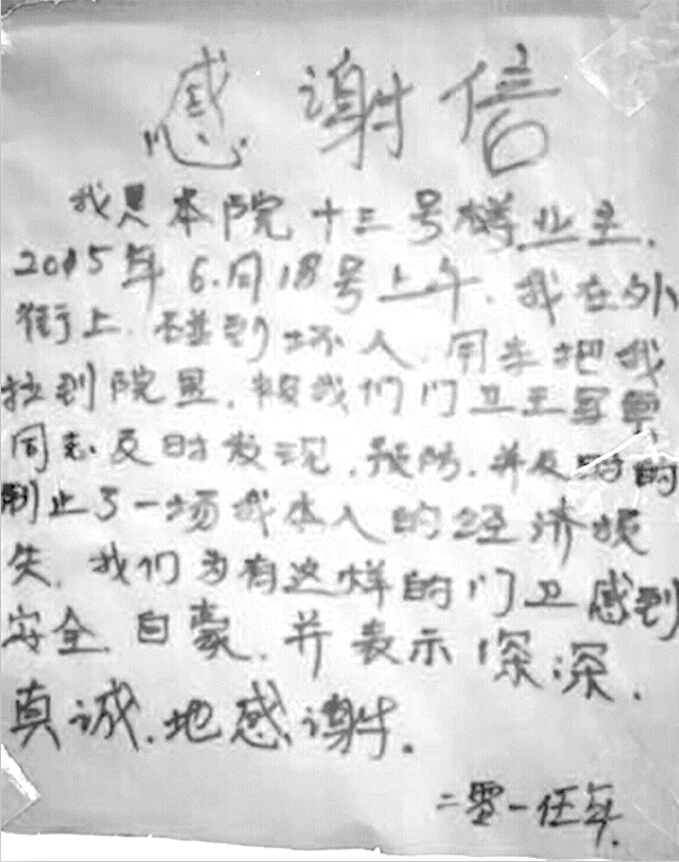 感谢信
我是本院十三号楼业主.
2015年6.月18号上午.我在外
街上.碰到坏人.用车把我
拉到院里.被我们门卫王军
同志.及时发现.预防.并及时的
制止了一场我本人的经济损
失.我们为有这样的门卫感到
安全.自豪.并表示深深.
真诚.地感谢.
二零一伍年.